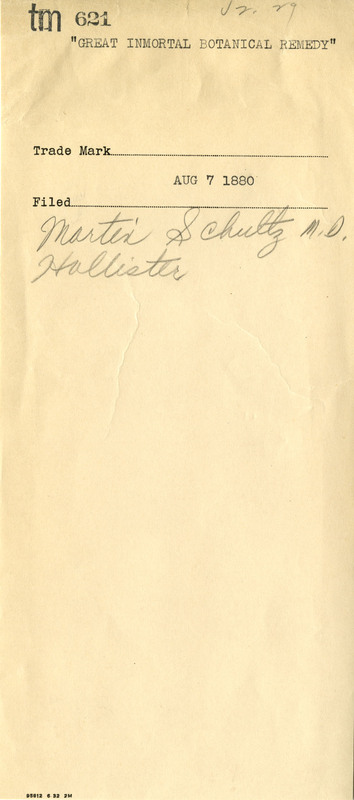 tm 621
"GREAT INMORTAL BOTANICAL REMEDY"
Trade Mark
AUG 7 1880
Filed
Martin Schultz M.D.
Hollister
95912 6 32 2M